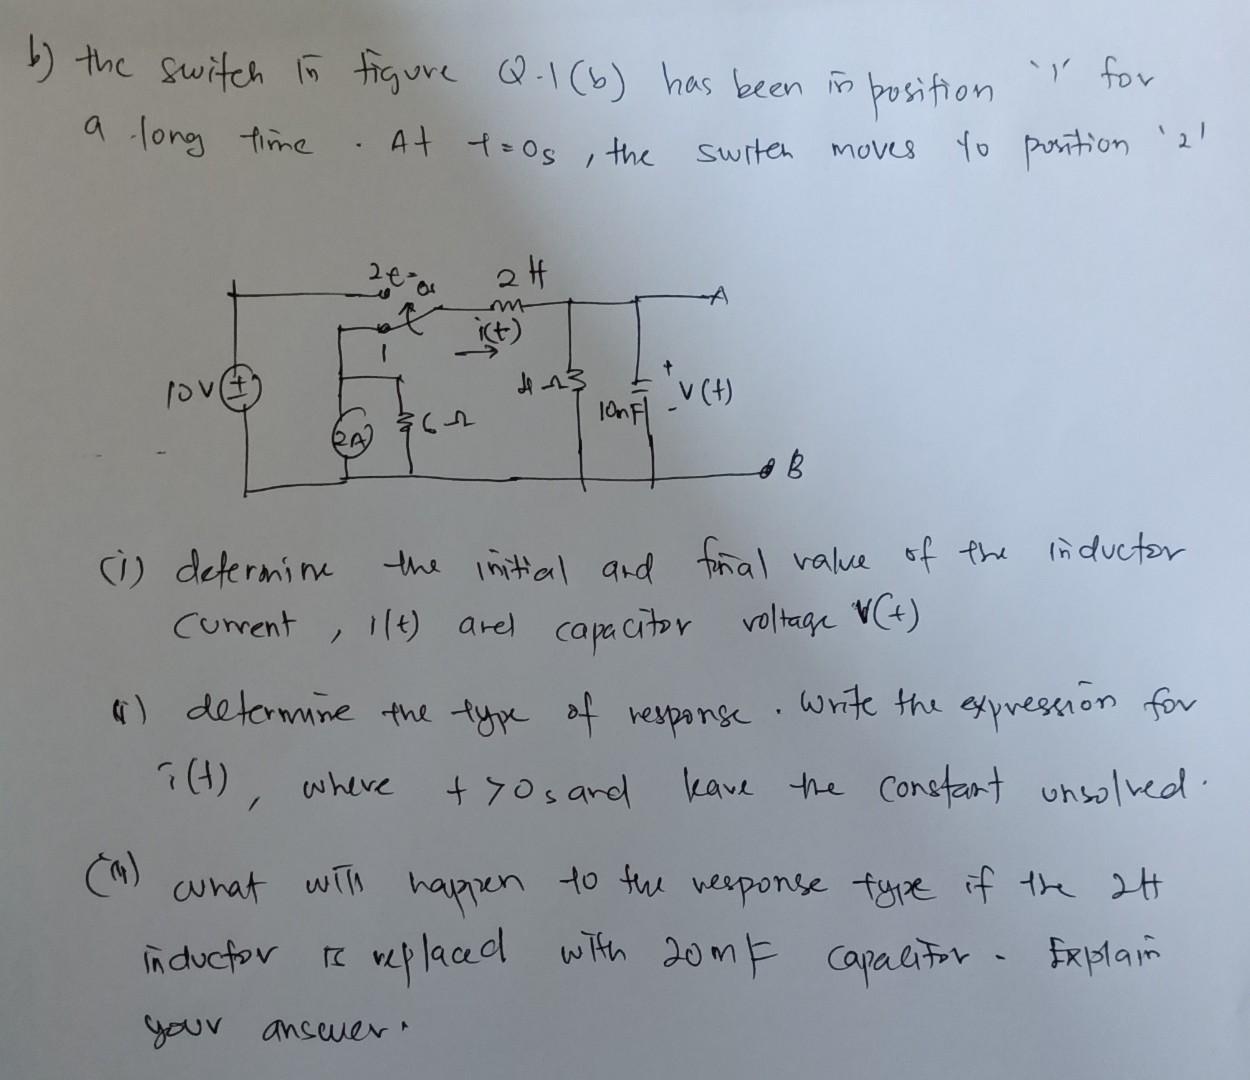 b) the switch in figure Q.1(b) has been in position '1' for
a long time. At t=0s, the switch moves to position '2'
2 t=0s
2H
A
i(t)
1
10V
4Ω
10nF
+
V(t)
-
2A
6Ω
B
(i) determine the initial and final value of the inductor
current, i(t) and capacitor voltage V(t)
(ii) determine the type of response. Write the expression for
i(t), where t>0s and leave the constant unsolved.
(iii) what will happen to the response type if the 2H
inductor is replaced with 20mF capacitor. Explain
your answer.